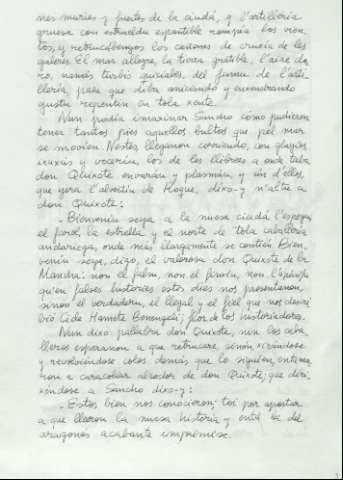 nes muries y fuertes de la ciudá, y l'artillería
gruesa con estruendu espantible rompía los vien-
tos, y retrucábenyos los cañones de crucía de les
galeres. El mar allegre, la tierra gratible, l'aire cla-
ro, namás turbiu quiciabes, del fumu de l'arti-
llería, paez que diba aniciando y xenerando
gustu repentín en tola xente.
Nun podía imaxinar Sancho cómo pudieren
tener tantos pies aquellos bultos que pel mar
se movíen. Nestes, llegaron corriendo, con
y los de les llibrees a onde taba
don Quixote y ún d'ellos,
que yera l'alvertíu de Roque, dixo-y n'alto a
don Quixote:
- Bienveníu seya a la nuesa ciudá l'espeyu,
el farol, la estrella y el norte de tola caballería
andariega, onde más llargamente se contién. Bien-
veníu seya, digo, el valerosu don Quixote de la
Mancha: non el falsu, non el non l'apócrifu
qu'en falses histories estos díes nos presentaron,
sinón el verdaderu, el llegal y el fiel que nos descri-
bió Cide Hamete Benengeli, flor de los historiadores.
Nun dixo pallabra don Quixote, nin los caba-
lleros esperaron a que retrucare, sinón xirándose
y revolviéndose colos demás que lo siguíen, entama-
ron a caracolear alredor de don Quixote; que diri-
xéndose a Sancho dixo-y:
- Estos bien nos conocieron; toi por apostar
a que lleeron la nuesa historia y entá la del
aragonés acabante imprentase.